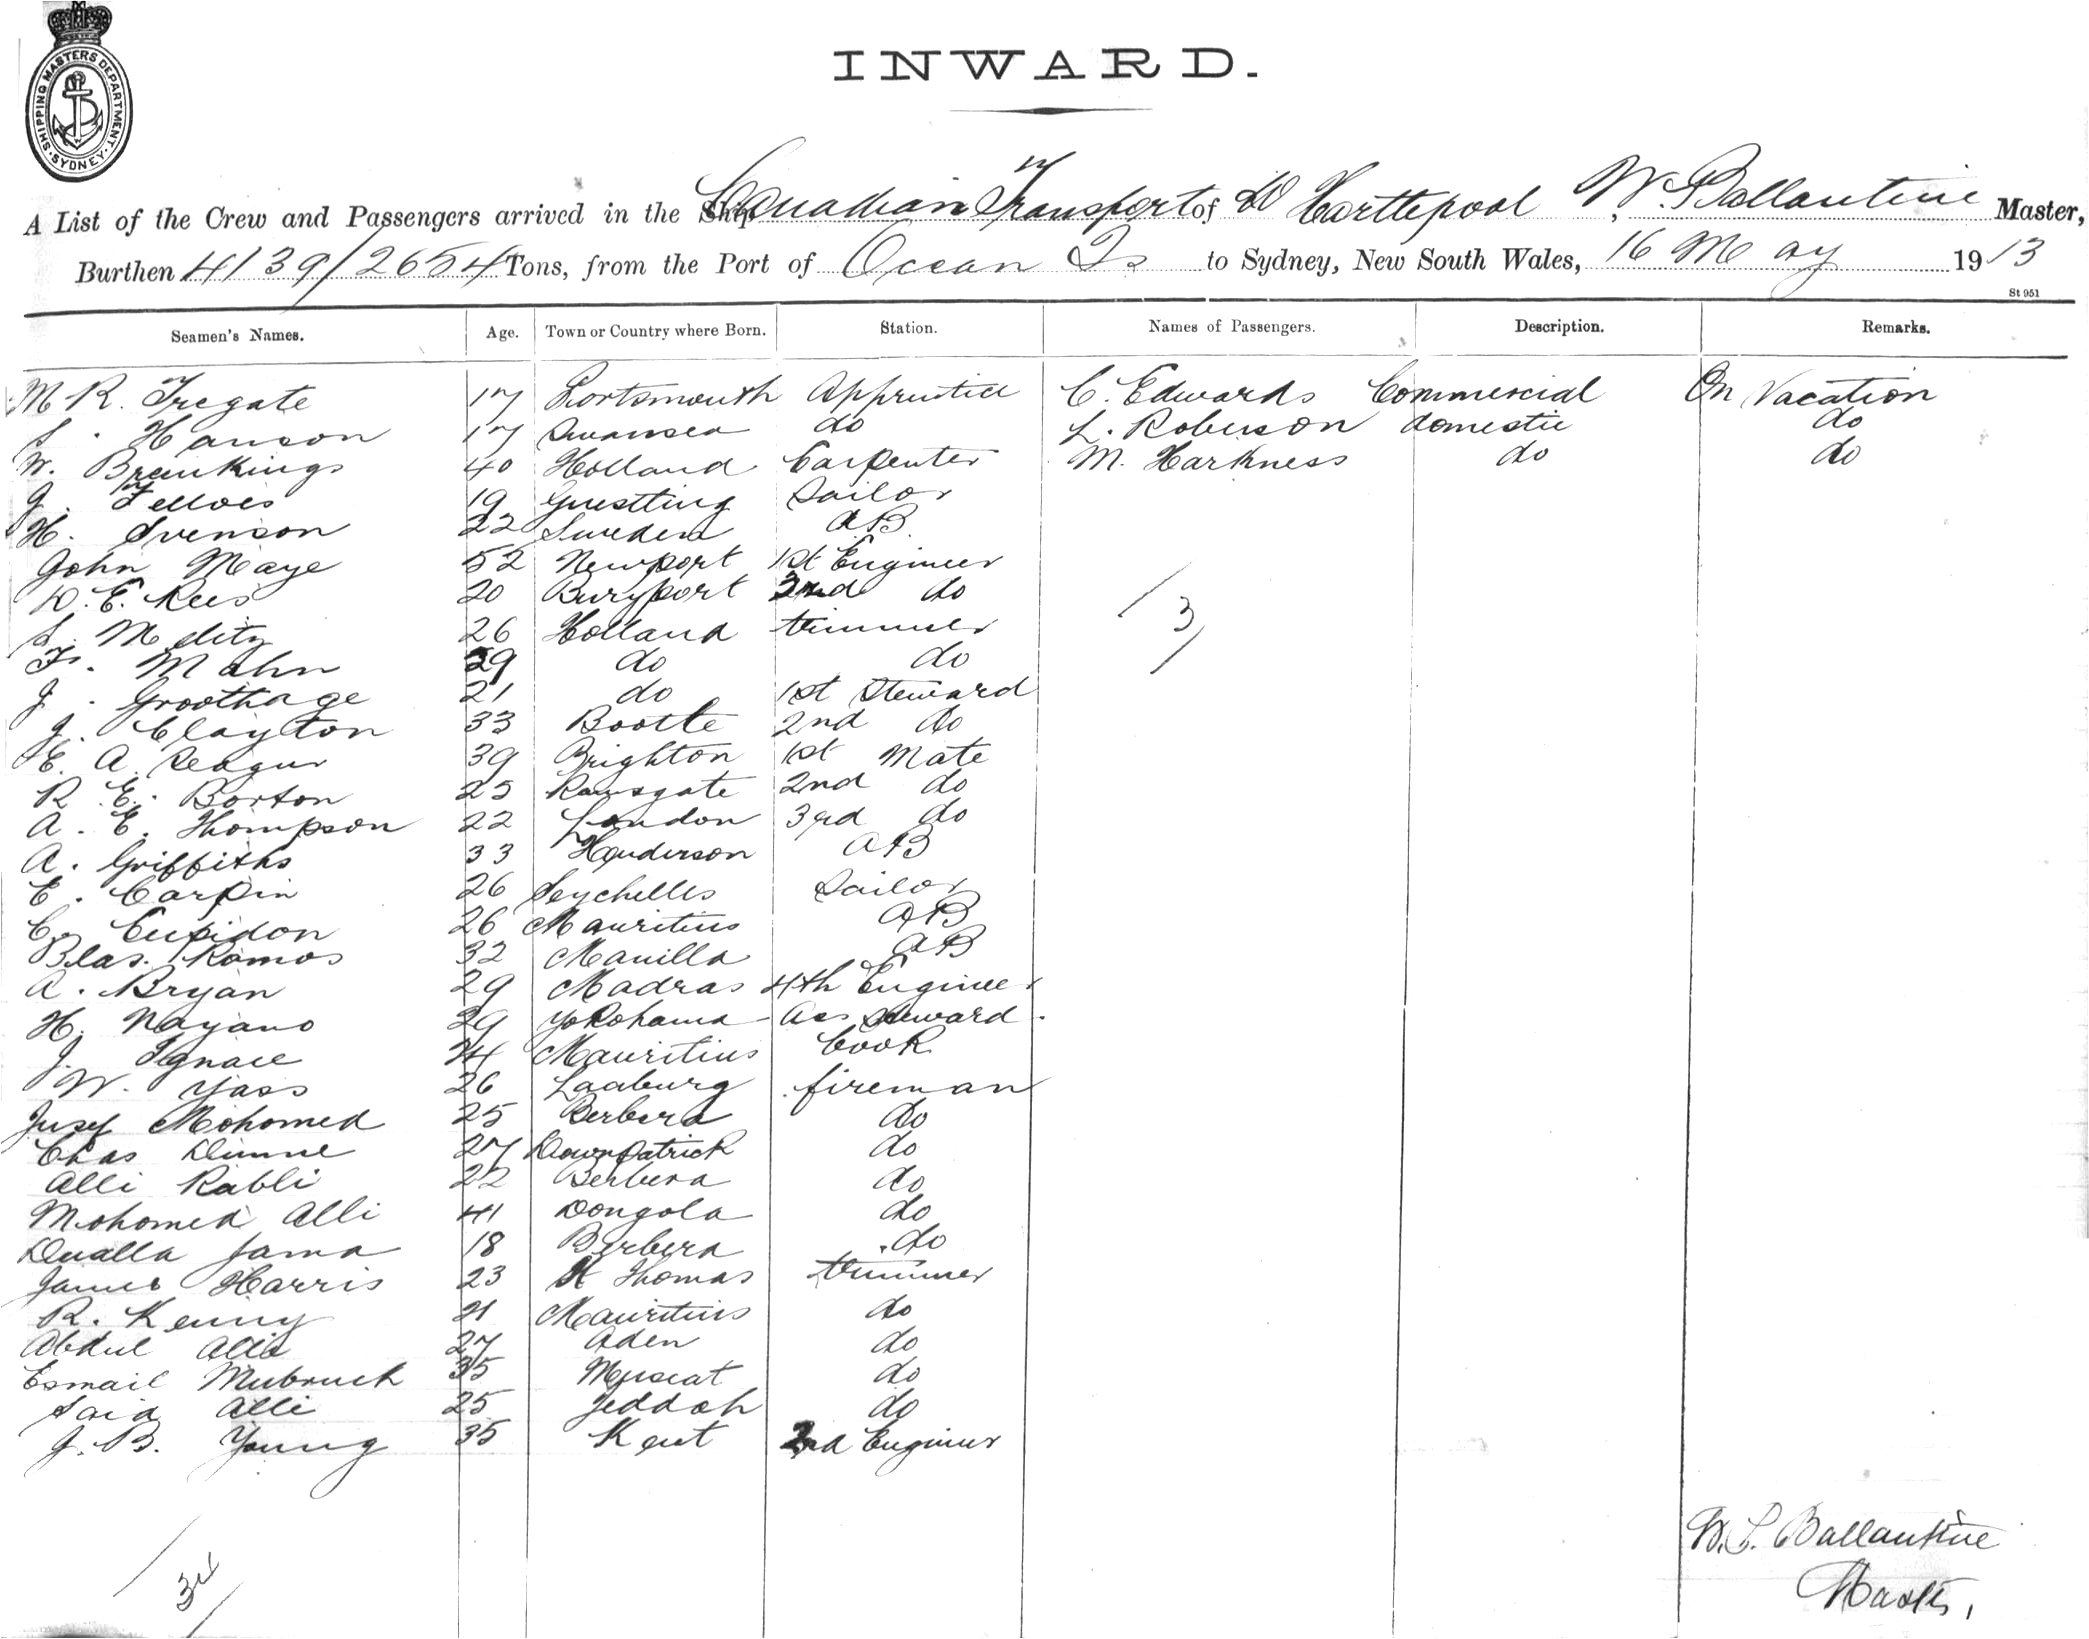 SHIPPING MASTERS DEPARTMENT. SYDNEY.
INWARD.
A List of the Crew and Passengers arrived in the Ship Canadian Transport of W Hartlepool W. Ballantine Master,
Burthen 4139/2654 Tons, from the Port of Ocean Is to Sydney, New South Wales, 16 May 1913
St 951
Seamen's Names. Age. Town or Country where Born. Station. Names of Passengers. Description. Remarks.
M R. Tregate 17 Portsmouth Apprentice C. Edwards Commercial On Vacation
S. Hanson 17 Swansea do L. Roberson domestic do
W. Breukings 40 Holland Carpenter M. Harkness do do
J. Fellows 19 Guestling Sailor
H. Svenson 22 Sweden AB
John Maye 52 Newport 1st Engineer
D. E. Rees 20 Buryport 3rd do
S. Melitz 26 Holland trimmer
F. Mahn 29 do do
J. Groothage 21 do 1st Steward
J. Clayton 33 Bootle 2nd do
E. A. Seagur 39 Brighton 1st Mate
R. E. Borton 25 Ramsgate 2nd do
A. E. Thompson 22 London 3rd do
A. Griffiths 33 Henderson AB
E. Carpin 26 Seychelles Sailor
C. Cupidon 26 Mauritius AB
Blas. Ramos 32 Manilla AB
A. Bryan 29 Madras 4th Engineer
H. Nayano 29 Yokohama Ass Steward.
J. Ignace 24 Mauritius Cook
W. Yass 26 Laaburg fireman
Jusef Mohomed 25 Berbera do
Chas Dinne 27 Downpatrick do
Alli Rabli 22 Berbera do
Mohomed Alli 41 Dongola do
Dualla Jama 18 Berbera do
James Harris 23 St Thomas trimmer
R. Kenny 21 Mauritius do
Abdul Alli 27 Aden do
Esmail Mubruck 35 Muscat do
Said Alli 25 Jeddah do
J. B. Young 35 Kent 2nd Engineer
3
W. L. Ballantine
Master,